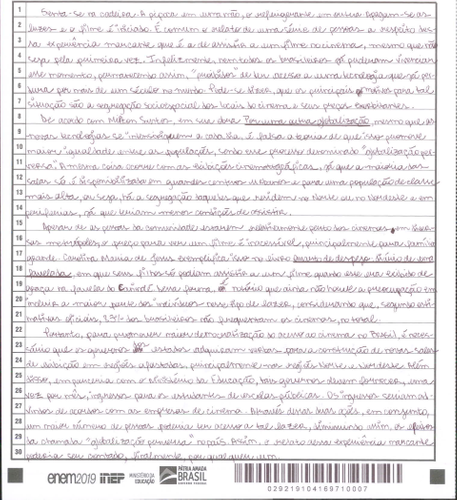 Senta-se na cadeira. A pipoca em uma mão, o refrigerante em outra. Apagam-se as
luzes e o filme é iniciado. É comum o relato de uma série de pessoas a respeito des-
sa experiência marcante que é a de assistir a um filme no cinema, mesmo que não
seja pela primeira vez. Infelizmente, nem todos os brasileiros podem vivenciar
esse momento, permanecendo assim, "proibidos" de ter acesso a uma tecnologia que já per-
dura por mais de um século no mundo. Pode-se dizer, que os principais motivos para tal
situação são a segregação socioespacial dos locais do cinema e seus preços exorbitantes.
De acordo com Milton Santos, em sua obra Por uma outra globalização, mesmo que as
novas tecnologias se a cada dia, é falsa a teoria de que isso promove
maior "igualdade entre as populações, sendo esse processo denominado "globalização per-
versa". A mesma coisa ocorre com as exibições cinematográficas, já que a maioria das
salas só é disponibilizada em grandes centros urbanos e para uma população de classe
mais alta, ou seja, há a segregação daqueles que residem no Norte ou no Nordeste e em
periferias, já que teriam menos condições de assistir.
Apesar de as pessoas da comunidade estarem relativamente perto dos cinemas em diver-
sas metrópoles, o preço para ver um filme é inacessível, principalmente para família
grande. Carolina Maria de Jesus exemplifica isso no livro Quarto de despejo: diário de uma
favelada, em que seus filhos só podiam assistir a um filme quando esse era exibido de
graça na favela do Canindé. Dessa forma, é notório que ainda não houve a preocupação em
incluir a maior parte dos indivíduos nesse tipo de lazer, considerando que, segundo esti-
mativas oficiais, dos brasileiros não frequentam os cinemas, no total.
Portanto, para promover maior democratização do acesso ao cinema no Brasil, é neces-
sário que os governos estatais adquiram verbas para a construção de novas salas
de exibição em regiões afastadas, principalmente nas regiões Norte e Nordeste. Além
disso, em parceria com o Ministério da Educação, tais governos devem fornecer, uma
vez por mês, ingressos para os estudantes de escolas públicas. Os ingressos seriam ad-
vindos de acordos com as empresas de cinema. Através dessas duas ações, em conjunto,
um maior número de pessoas poderia ter acesso a tal lazer, diminuindo assim, os efeitos
da chamada "globalização perversa" no país. Assim, o relato dessa experiência marcante
poderia ser contado, finalmente, por qualquer um.
enem2019 inep MINISTÉRIO DA EDUCAÇÃO PÁTRIA AMADA BRASIL
029219104169710007